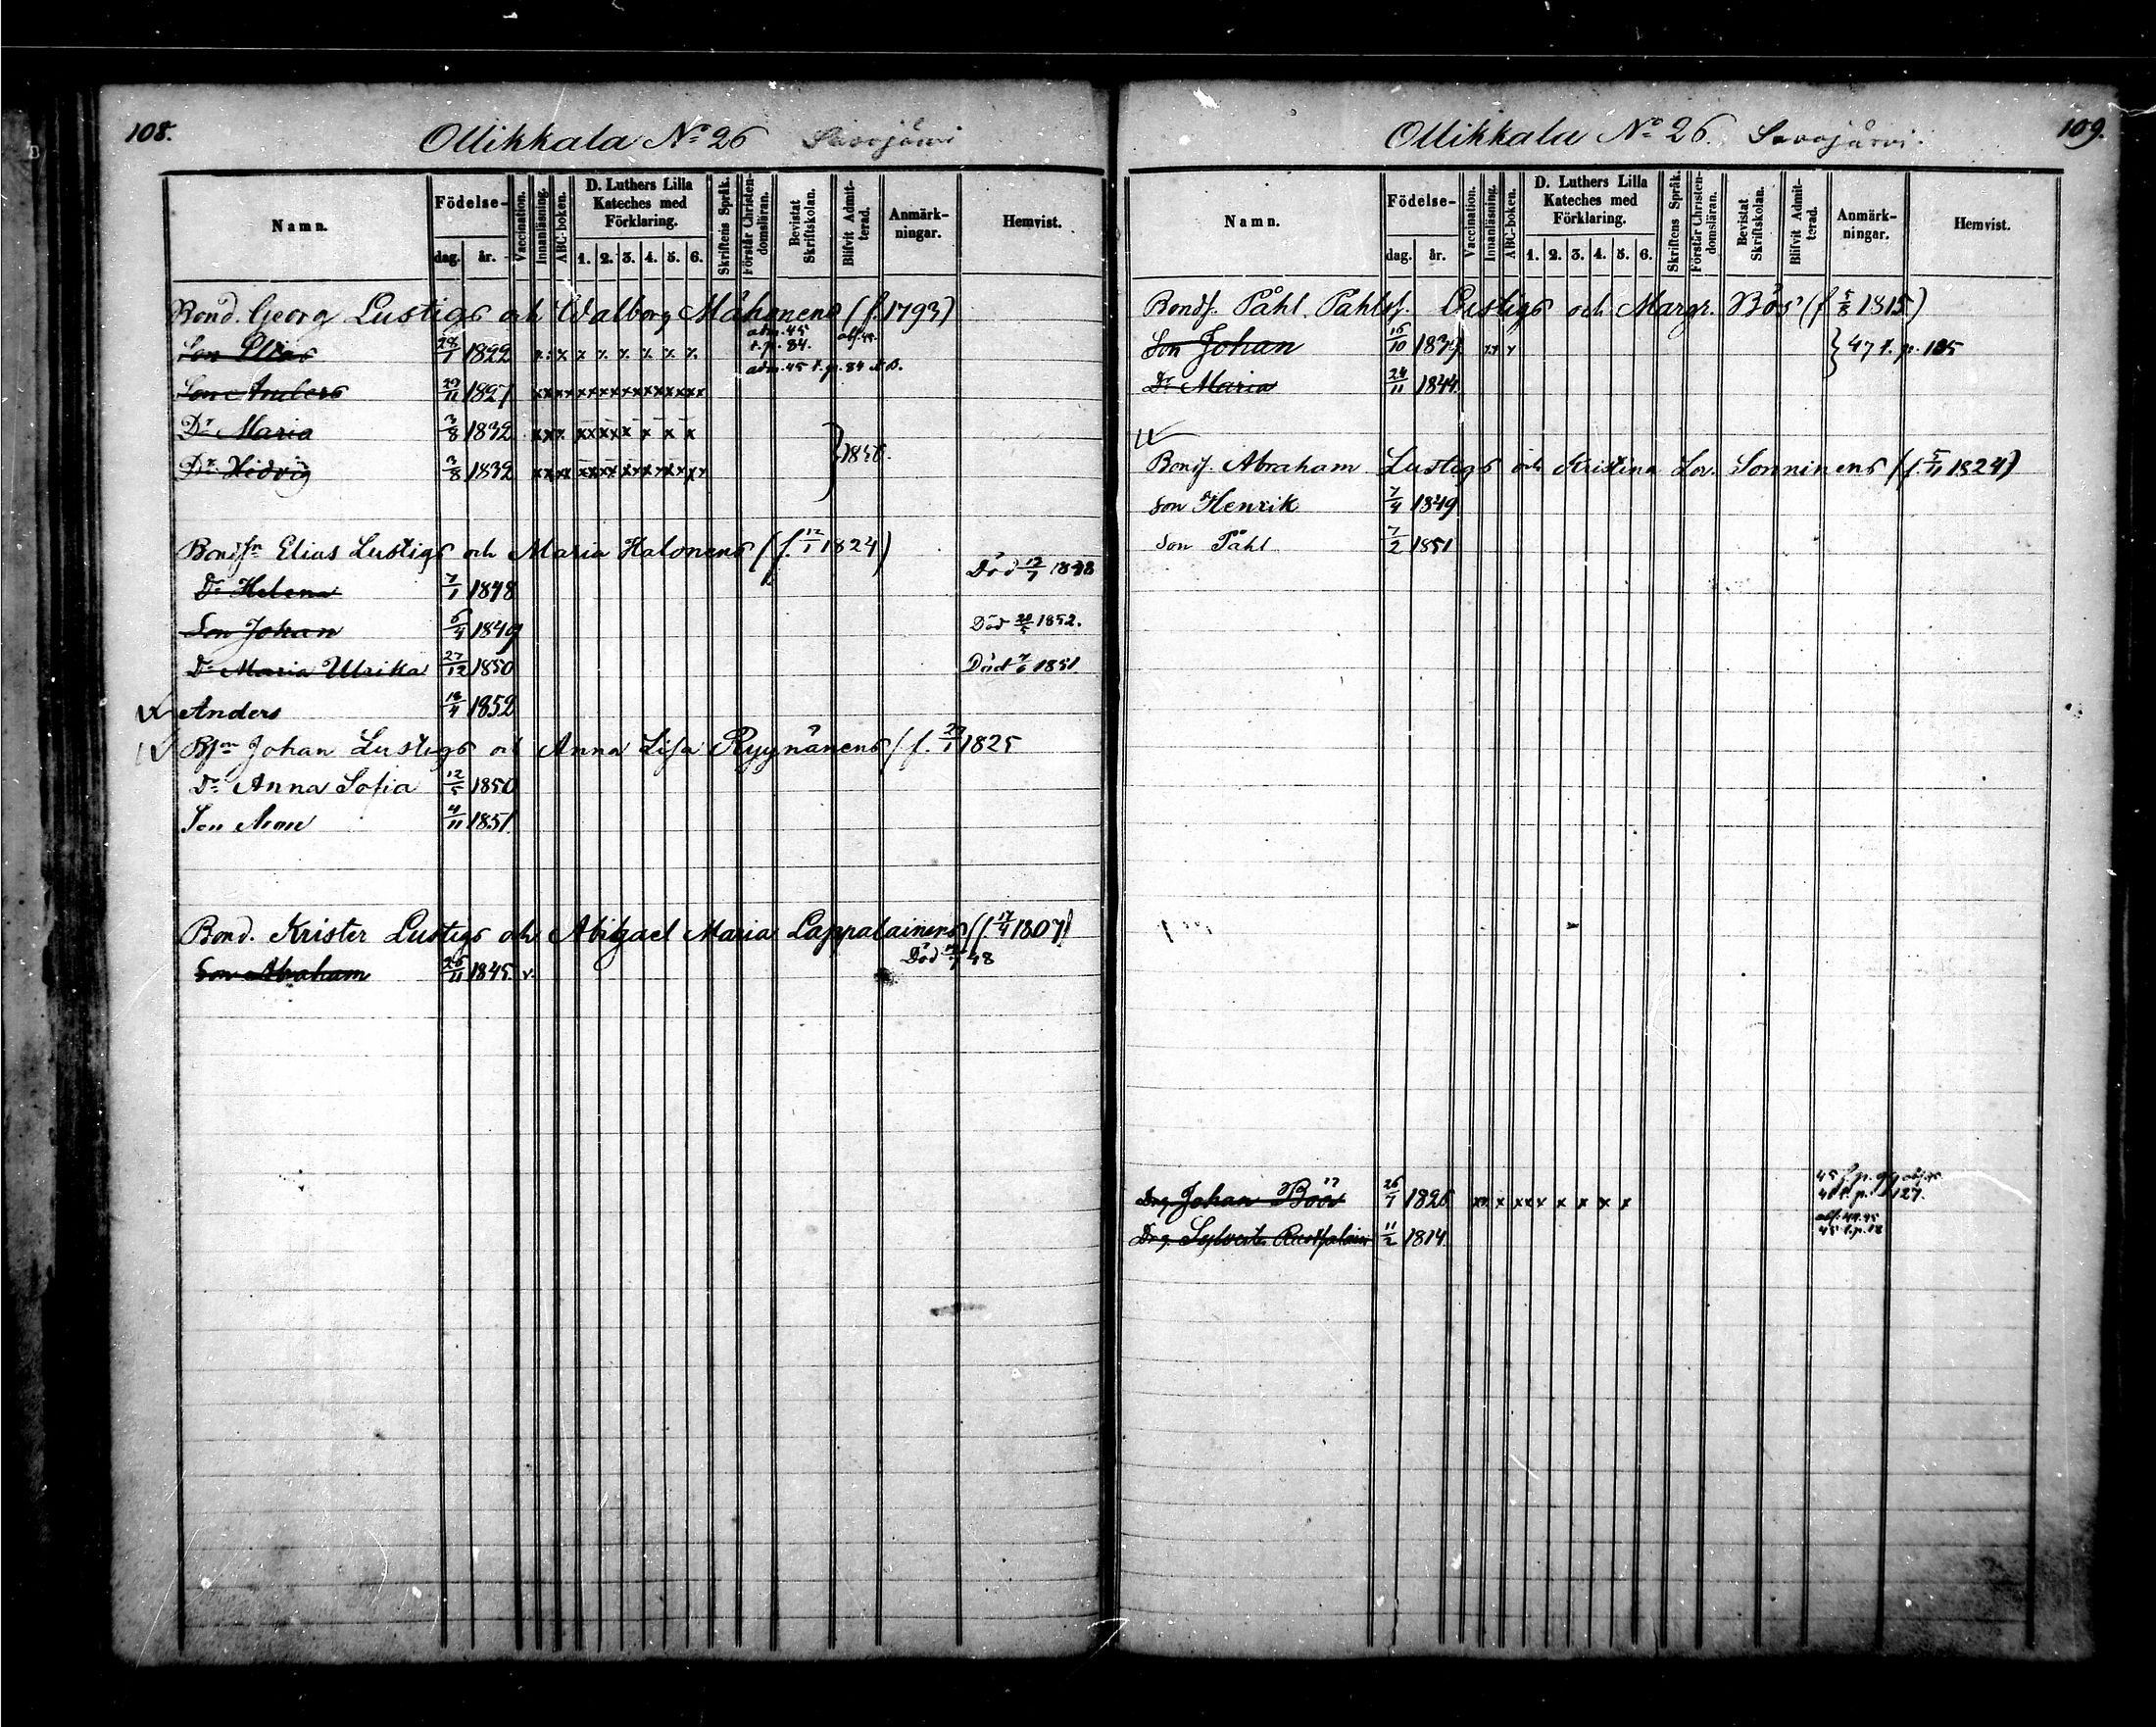 108.
Ollikkala No 26 Savojärvi
Namn. Födelse- dag. år. Vaccination. Innanläsning. ABC-boken. D. Luthers Lilla Kateches med Förklaring. 1. 2. 3. 4. 5. 6. Skriftens Språk. Förstår Christen-domsläran. Bevistat Skriftskolan. Blifvit Admit-terad. Anmärk-ningar. Hemvist.
Bond. Georg Lustigs och Walborg Måhonens (f. 1793)
Son Elias 28/1 1822 adm. 45 t. p. 84.
Son Anders 29/11 1827 adm. 45 t. p. 84
Dr Maria 3/8 1832
Dr Hedvig 3/8 1832 } 1850.
Bondsn Elias Lustigs och Maria Halonens (f. 12/1 1824)
Dr Helena 7/1 1848 Död 12/7 1848
Son Johan 6/4 1849 Död 20/5 1852.
Dr Maria Ulrika 27/12 1850 Död 7/6 1851.
Anders 18/4 1852
Bsn Johan Lustigs och Anna Lisa Ryynänens (f. 29/1 1825
Dr Anna Sofia 12/5 1850
Son Aron 4/11 1851
Bond. Krister Lustigs och Abigael Maria Lappalainens (f. 17/4 1807)
Son Abraham 26/11 1845. v. Död 48
109.
Ollikkala No 26. Savojärvi.
Namn. Födelse- dag. år. Vaccination. Innanläsning. ABC-boken. D. Luthers Lilla Kateches med Förklaring. 1. 2. 3. 4. 5. 6. Skriftens Språk. Förstår Christen-domsläran. Bevistat Skriftskolan. Blifvit Admit-terad. Anmärk-ningar. Hemvist.
Bonds. Påhl Påhls. Lustigs och Margr. Böös (f 5/8 1815)
Son Johan 16/10 1839 } 47 t. p. 105
Dr Maria 24/11 1844.
Bonds. Abraham Lustigs och Kristina Lov. Sonninens (f. 5/11 1824)
Son Henrik 7/4 1849
Son Påhl 7/2 1851
Drg. Johan Böös 26/7 1826 127.
Drg. Sylvest. 11/2 1814.